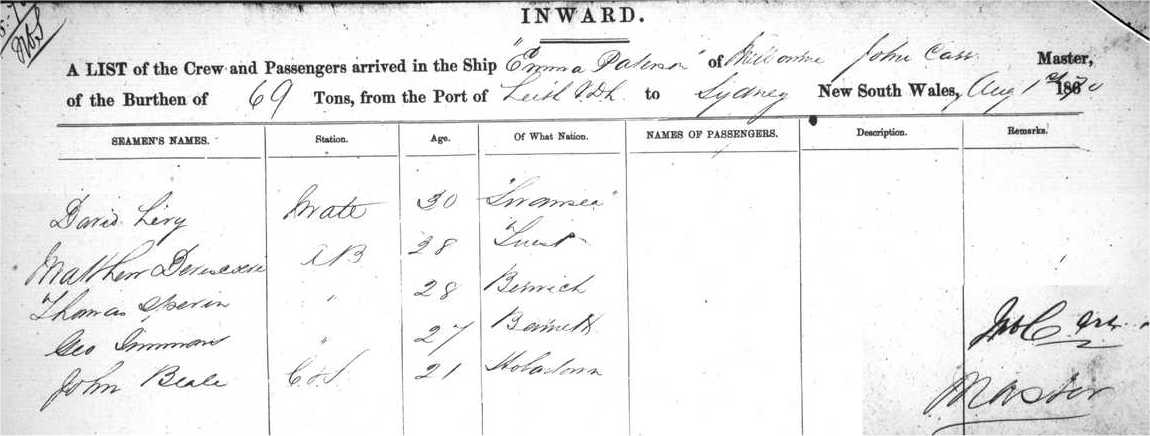 INWARD.
A LIST of the Crew and Passengers arrived in the Ship "Emma Paterson" of Melbourne John Carr Master,
of the Burthen of 69 Tons, from the Port of to Sydney New South Wales, Aug 1st 1870
SEAMEN'S NAMES. Station. Age. Of What Nation. NAMES OF PASSENGERS. Description. Remarks.
David Levy Mate 30 "Swansea"
Matthew AB 28
Thomas " 28 Berwick
Geo " 27
John Beale C & S 21 Hobartown
Jno Carr
Master